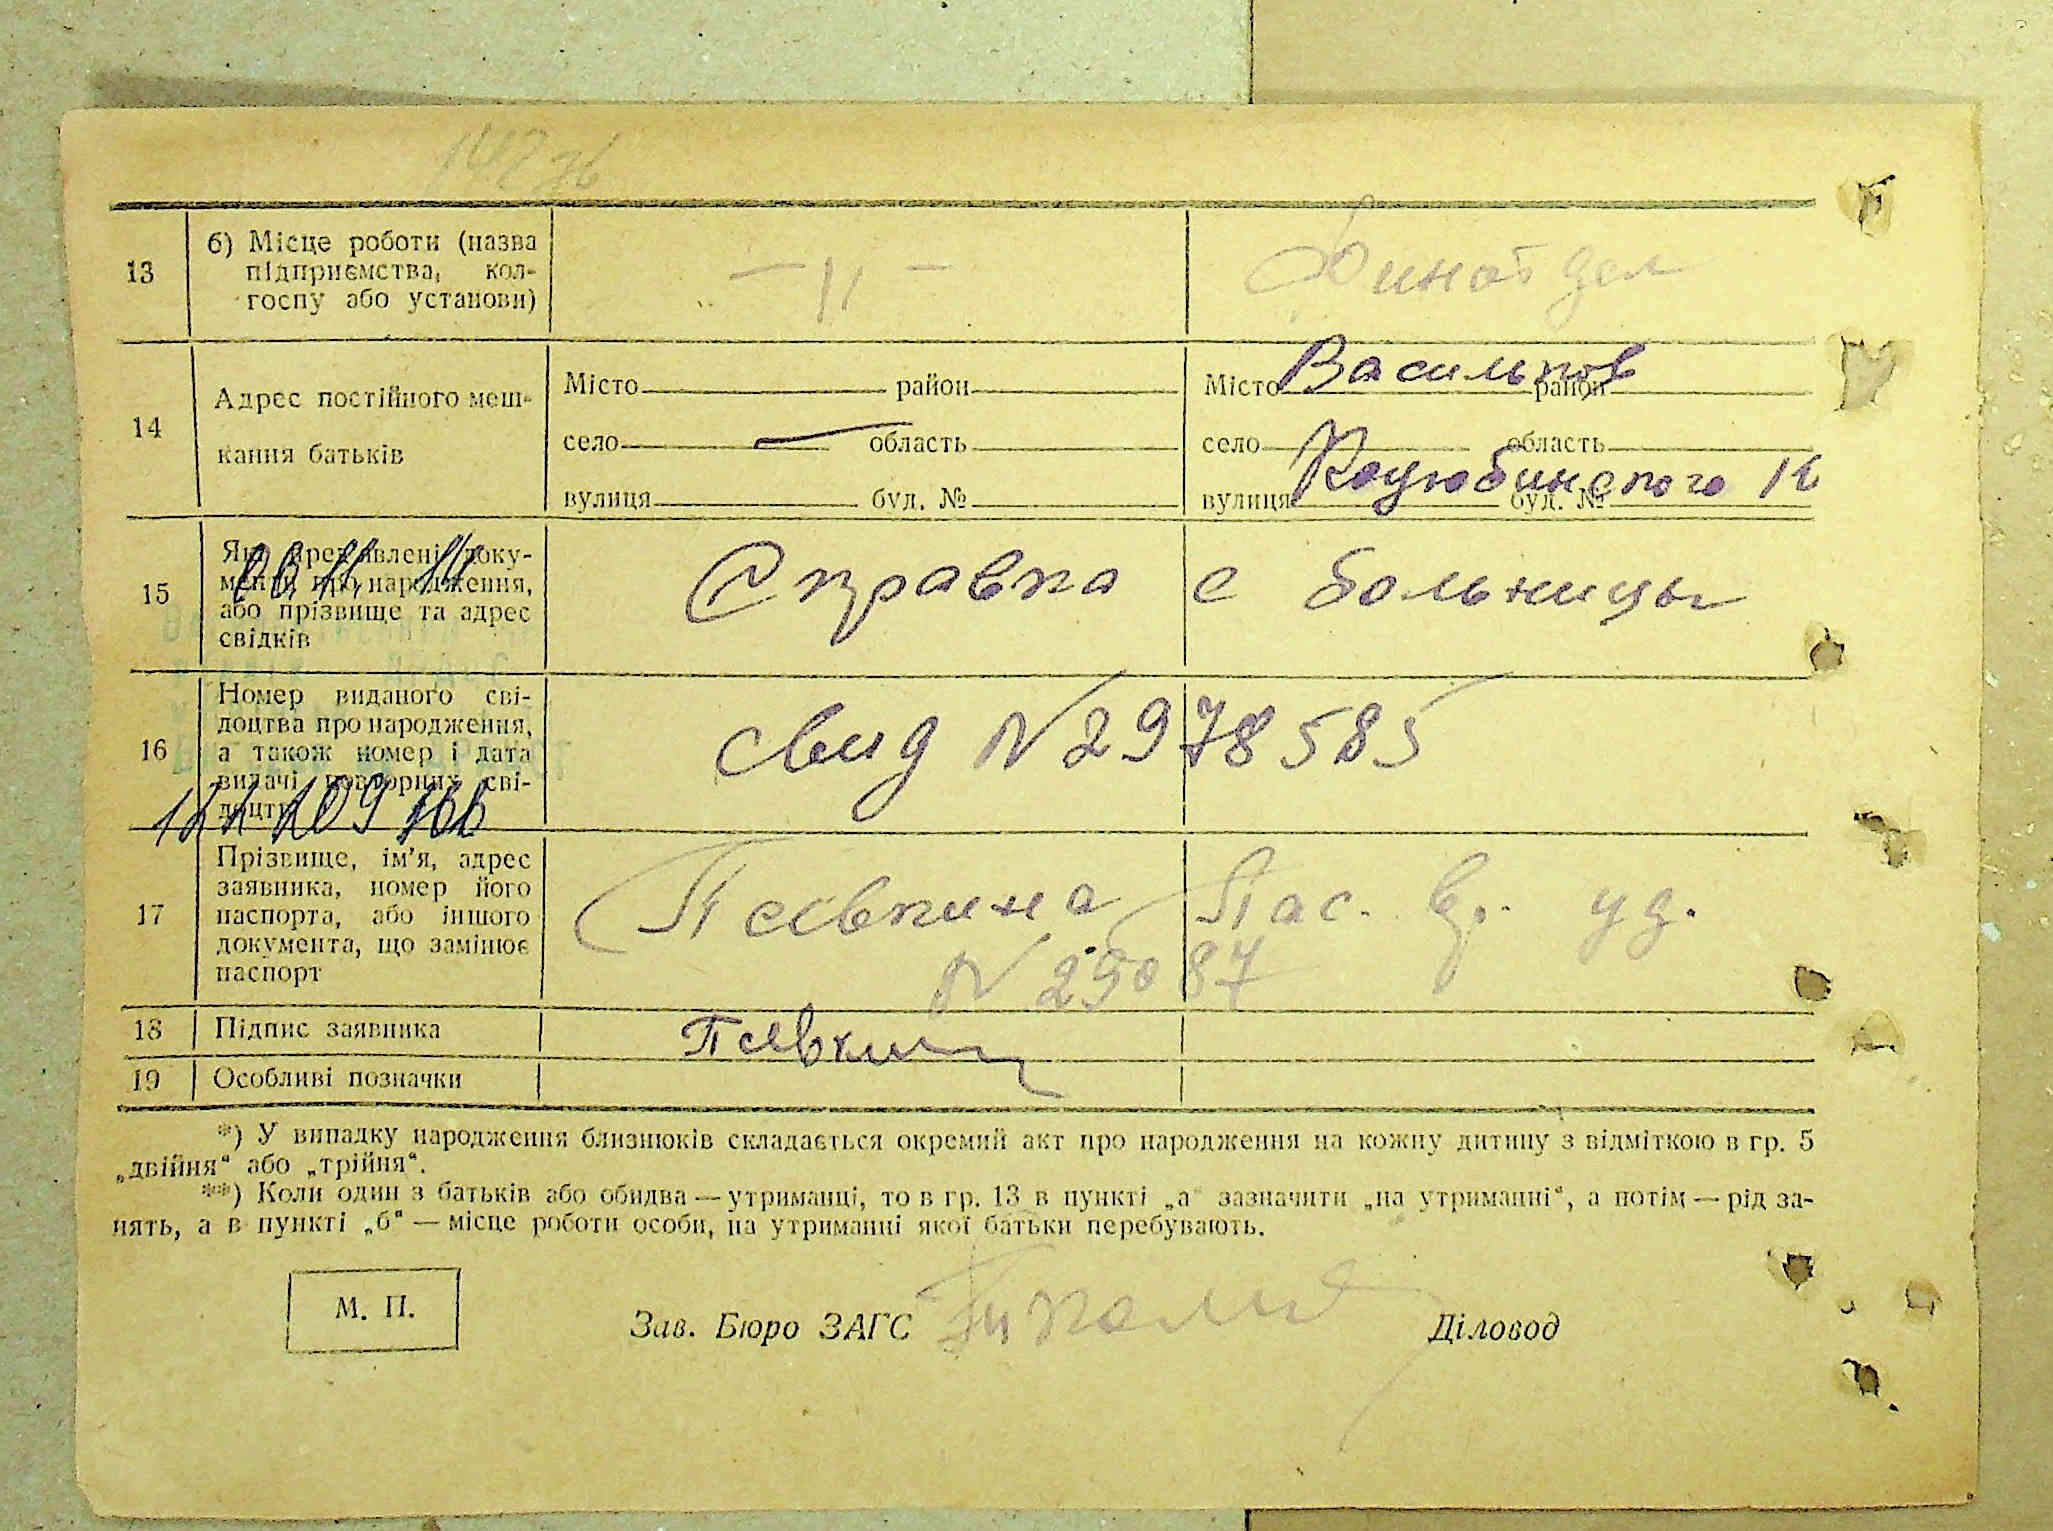 13
б) Місце роботи (назва
підприємства, кол-
госпу або установи)
— 〃 —
Финотдел
14
Адрес постійного меш-
кання батьків
Місто район
село — область
вулиця буд. №
Місто Васильков район
село область
вулиця Коцюбинского буд. №
15
Які пред'явлені доку-
менти про народження,
або прізвище та адрес
свідків
Справка с больницы
16
Номер виданого сві-
доцтва про народження,
а також номер і дата
видачі повторних сві-
доцтв
Свид N 2978585
17
Прізвище, ім'я, адрес
заявника, номер його
паспорта, або іншого
документа, що замінює
паспорт
Пас. вр. уд.
N 25087
18
Підпис заявника
19
Особливі позначки
*) У випадку народження близнюків складається окремий акт про народження на кожну дитину з відміткою в гр. 5
„двійня“ або „трійня“.
**) Коли один з батьків або обидва — утриманці, то в гр. 13 в пункті „а“ зазначити „на утриманні“, а потім — рід за-
нять, а в пункті „б“ — місце роботи особи, на утриманні якої батьки перебувають.
М. П.
Зав. Бюро ЗАГС
Діловод